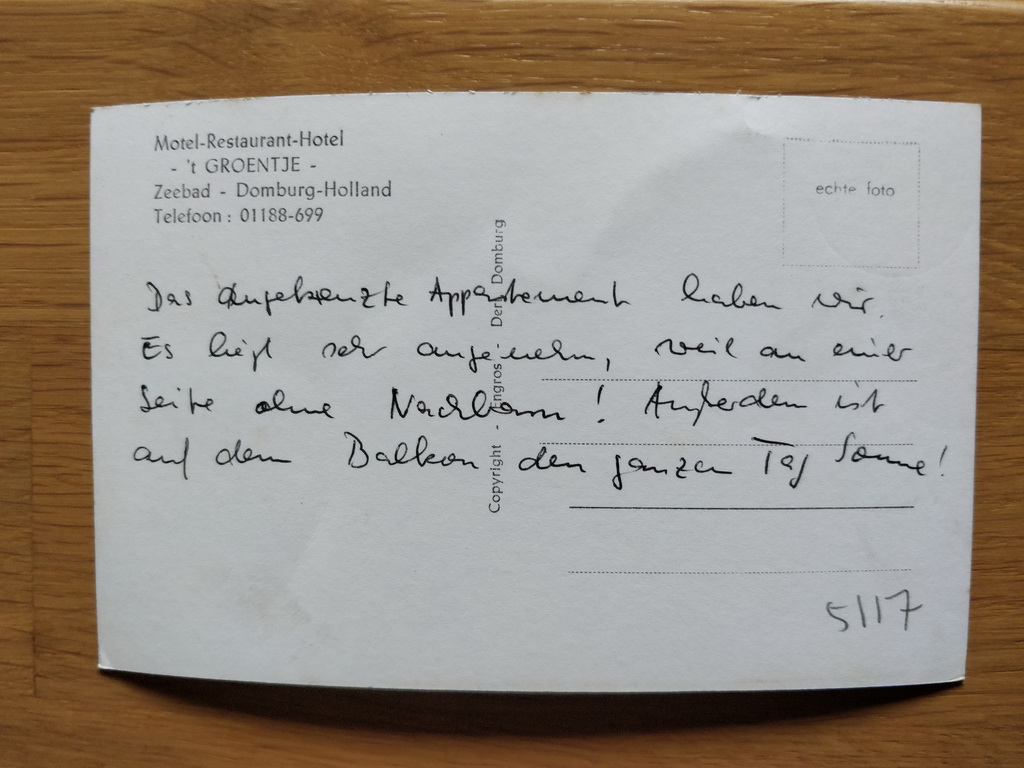 Motel-Restaurant-Hotel
- 't GROENTJE -
Zeebad - Domburg-Holland
Telefoon : 01188-699
echte foto
Das angekreuzte Appartement haben wir.
Es liegt sehr angenehm, weil an einer
Seite ohne Nachbarn! Außerdem ist
auf dem Balkon den ganzen Tag Sonne!
Copyright - Engros Derk Domburg
5117